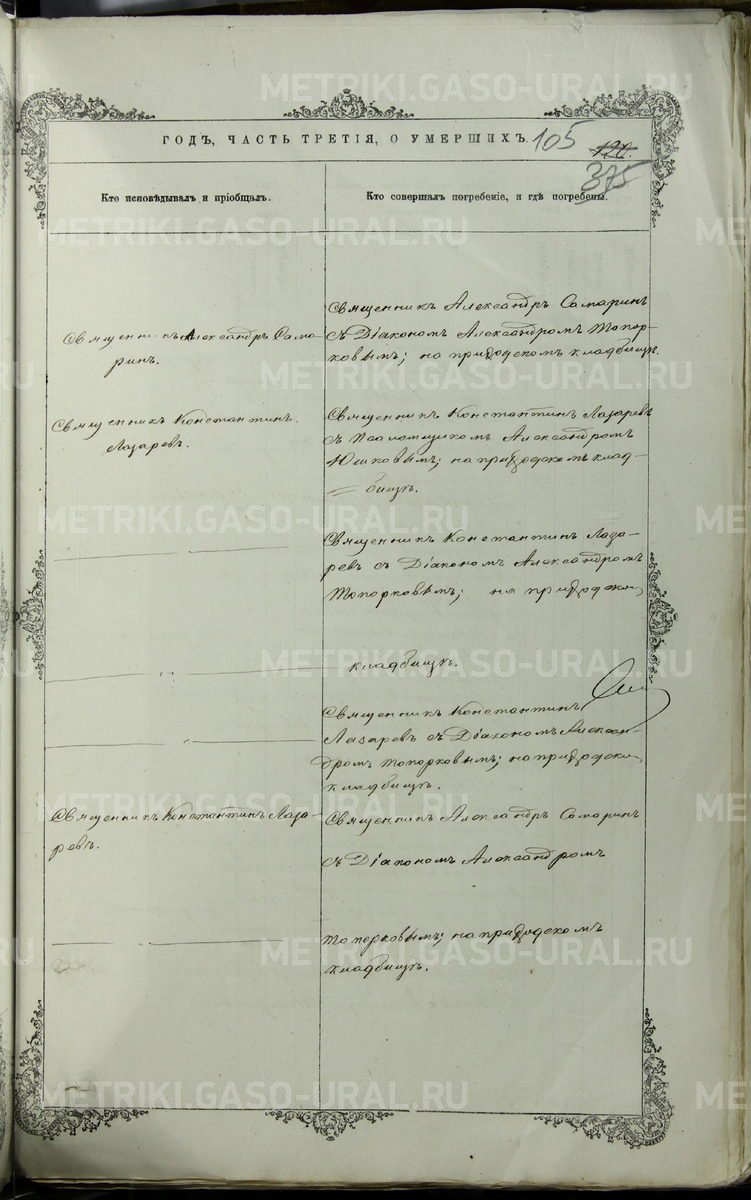 METRIKI.GASO-URAL.RU
ГОДЪ, ЧАСТЬ ТРЕТІЯ, О УМЕРШИХЪ.
105
120
375
Кто исповѣдывалъ и пріобщалъ.
Кто совершалъ погребеніе, и гдѣ погребены.
Священникъ Александръ Сама-
ринъ.
Священникъ Александръ Самаринъ
съ Діакономъ Александромъ Топор-
ковымъ; на приходскомъ кладбищѣ.
Священникъ Константинъ
Лазаревъ.
Священникъ Константинъ Лазаревъ
съ Псаломщикомъ Александромъ
Юшковымъ; на приходскомъ клад-
бищѣ.
Священникъ Константинъ Лаза-
ревъ съ Діакономъ Александромъ
Топорковымъ; на приходско
кладбищѣ.
Священникъ Константинъ
Лазаревъ съ Діакономъ Алексан-
дромъ Топорковымъ; на приходско
кладбищѣ.
Священникъ Константинъ Лаза-
ревъ.
Священникъ Александръ Самаринъ
съ Діакономъ Александромъ
Топорковымъ; на приходскомъ
кладбищѣ.